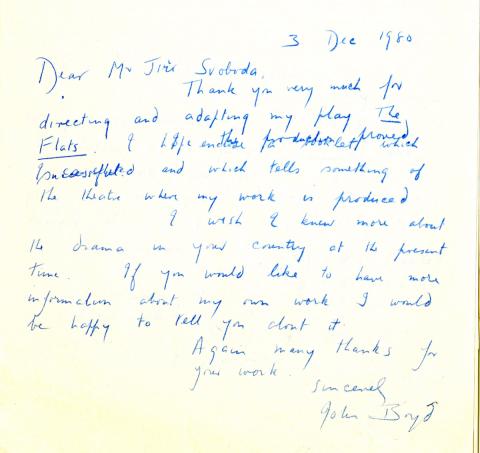 3 Dec 1980
Dear Mr Jiří Svoboda,
Thank you very much for
directing and adapting my play The
Flats. I hope the production proved
enclose a booklet which
and which tells something of
the theatre where my work is produced
I wish I knew more about
the drama in your country at the present
time. If you would like to have more
information about my own work I would
be happy to tell you about it
Again many thanks for
your work.
Sincerely
John Boyd